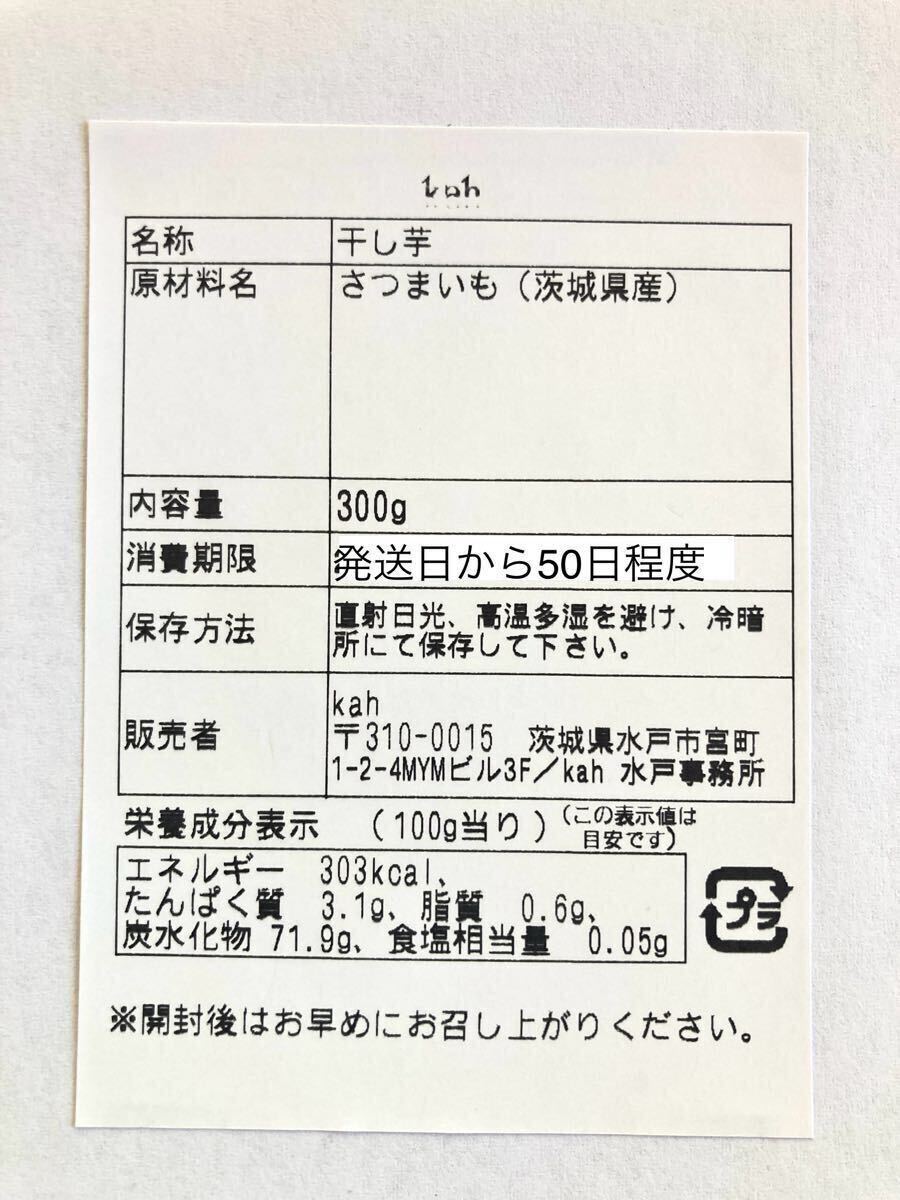 kah
名称 干し芋
原材料名 さつまいも（茨城県産）
内容量 300g
消費期限 発送日から50日程度
保存方法 直射日光、高温多湿を避け、冷暗
所にて保存して下さい。
販売者 kah
〒310-0015 茨城県水戸市宮町
1-2-4MYMビル3F／kah 水戸事務所
栄養成分表示 （100g当り）（この表示値は
目安です）
エネルギー 303kcal、
たんぱく質 3.1g、脂質 0.6g、
炭水化物 71.9g、食塩相当量 0.05g
プラ
※開封後はお早めにお召し上がりください。